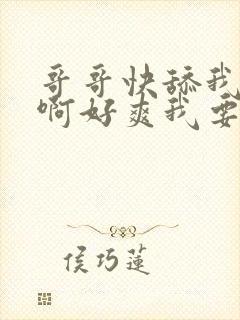 哥哥快舔我
啊好爽我要
侯巧莲